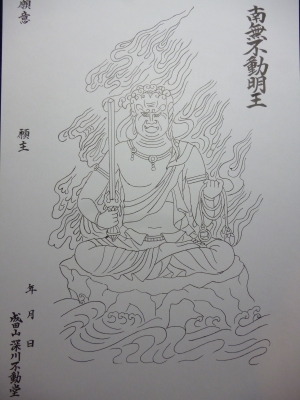 南無不動明王
願意
願主
年月日
成田山深川不動堂